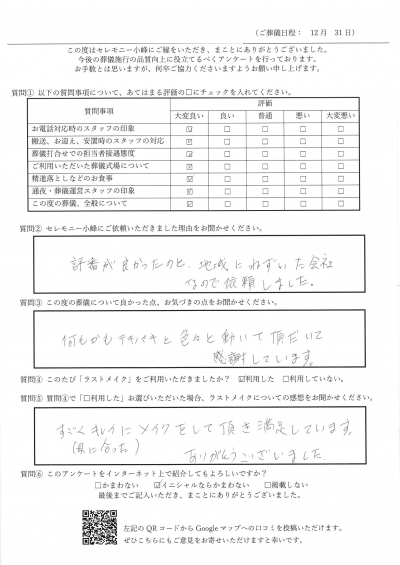 (ご葬儀日程： 12月 31日)
この度はセレモニー小峰にご縁をいただき、まことにありがとうございました。
今後の葬儀施行の品質向上に役立てるべくアンケートを行っております。
お手数とは思いますが、何卒ご協力くださいますようお願い申し上げます。
質問① 以下の質問事項について、あてはまる評価の□にチェックを入れてください。
質問事項 評価
大変良い 良い 普通 悪い 大変悪い
お電話対応時のスタッフの印象 ☑ □ □ □ □
搬送、お迎え、安置時のスタッフの対応 ☑ □ □ □ □
葬儀打合せでの担当者接遇態度 ☑ □ □ □ □
ご利用いただいた葬儀式場について ☑ □ □ □ □
精進落としなどのお食事 ☑ □ □ □ □
通夜・葬儀運営スタッフの印象 ☑ □ □ □ □
この度の葬儀、全般について ☑ □ □ □ □
質問② セレモニー小峰にご依頼いただきました理由をお聞かせください。
評番が良かったのと、地域にねずいた会社
なので依頼しました。
質問③ この度の葬儀について良かった点、お気づきの点をお聞かせください。
何もかもテキパキと色々と動いて頂だいて
感謝しています。
質問④ このたび「ラストメイク」をご利用いただきましたか？ ☑利用した □利用していない。
質問⑤ 質問④で「□利用した」お選びいただいた場合、ラストメイクについての感想をお聞かせください。
すごくキレイにメイクをして頂き満足しています。
(間に合った) ありがとうございました
質問⑥ このアンケートをインターネット上で紹介してもよろしいですか？
□かまわない ☑イニシャルならかまわない □掲載しない
最後までご記入いただき、まことにありがとうございました。
左記のQRコードからGoogleマップへの口コミを投稿いただけます。
ぜひこちらにもご意見をお寄せいただけますと幸いです。